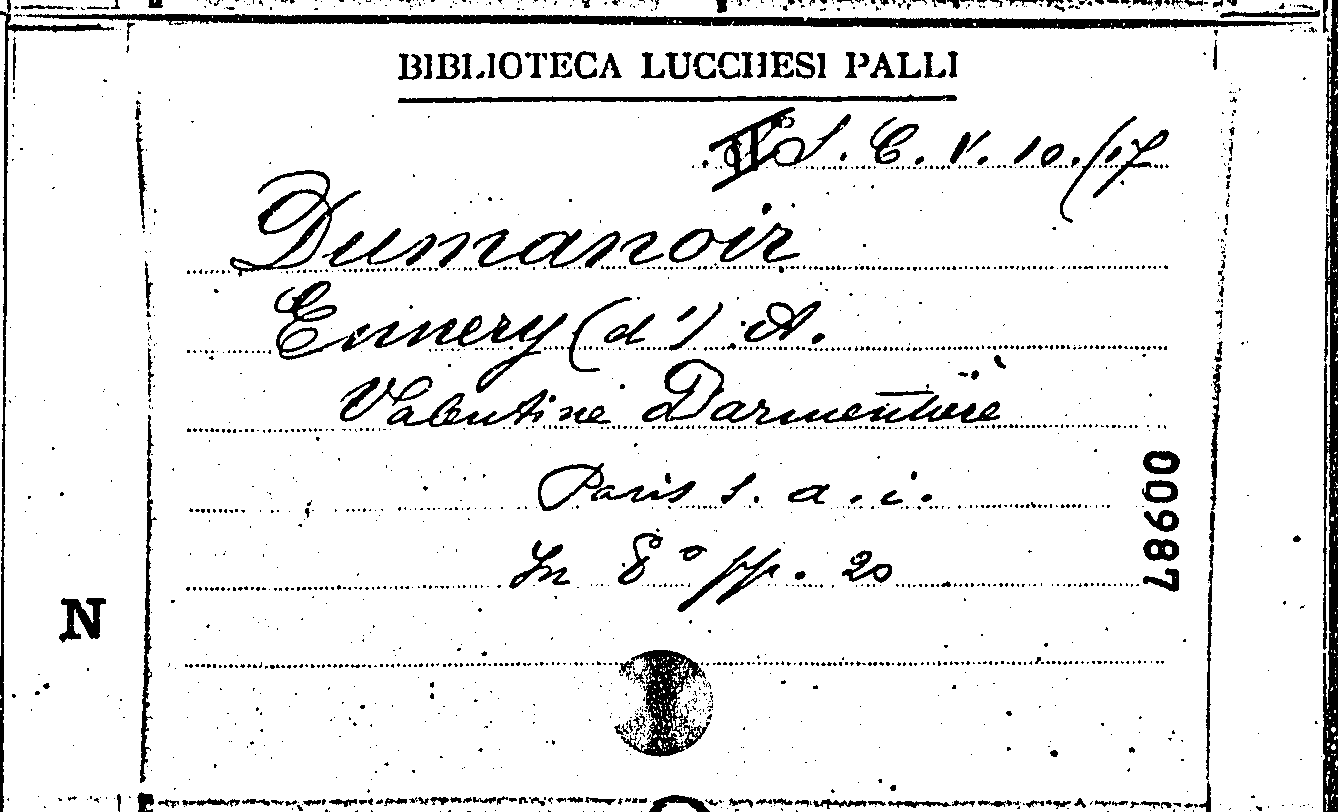 BIBLIOTECA LUCCHESI PALLI
S. C. V. 10./17
Dumanoir
Ennery (d') A.
Valentine Darmentière
Paris s. a. i.
In 8° pp. 20
00987
N